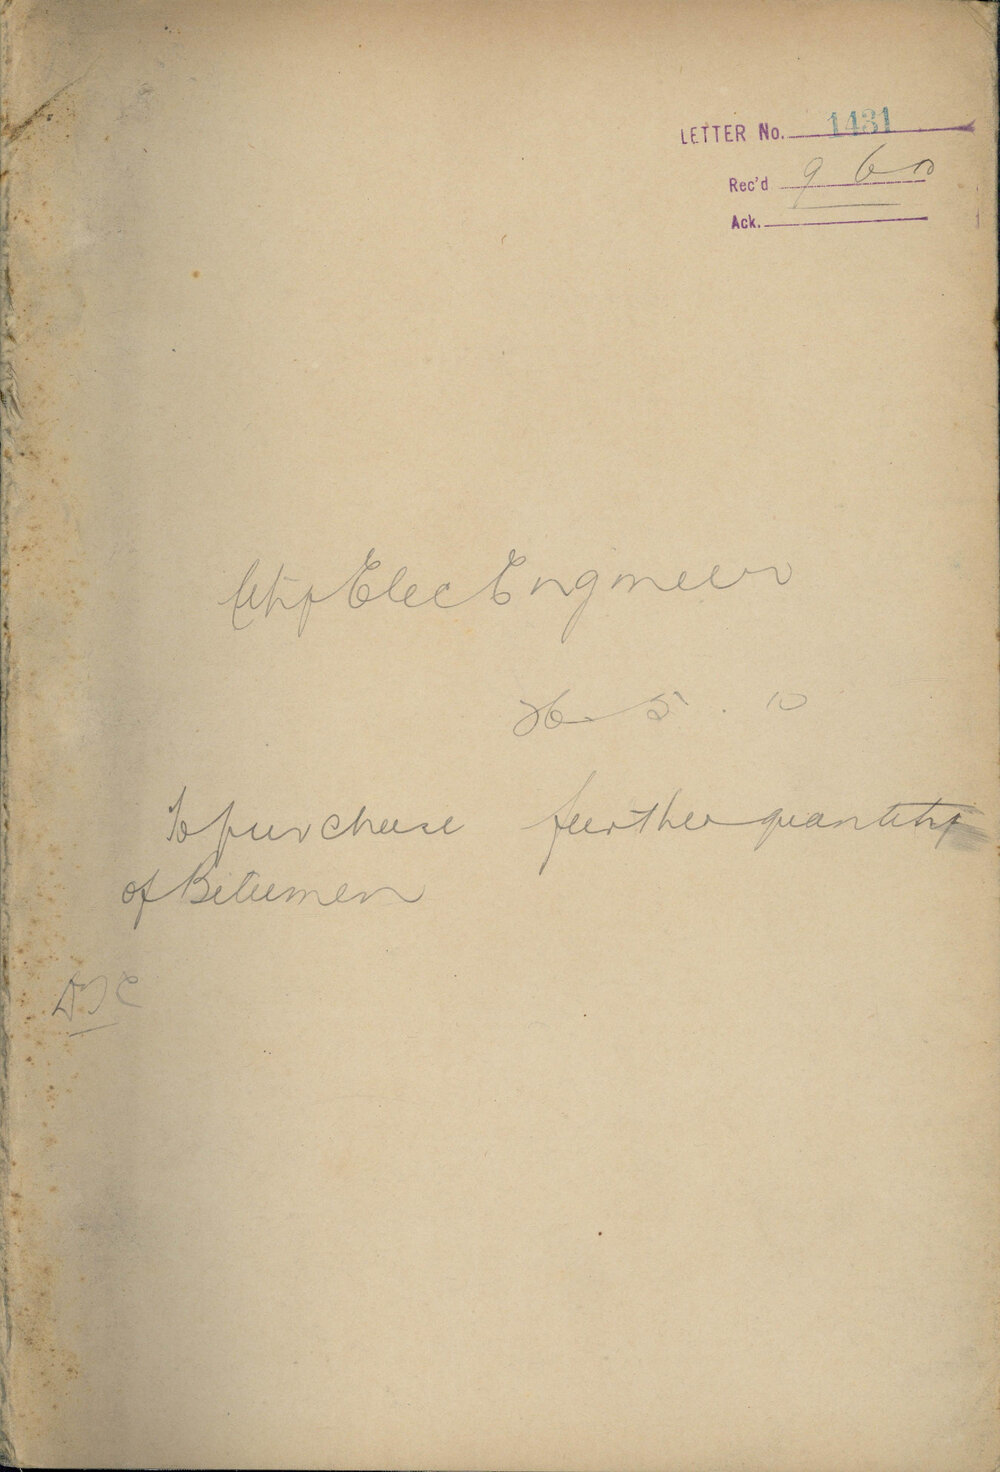 LETTER No. 1431
Rec'd 9 6 10
Ack.
City Elec Engineer
26 5. 10
To purchase further quantity
of Bitumen